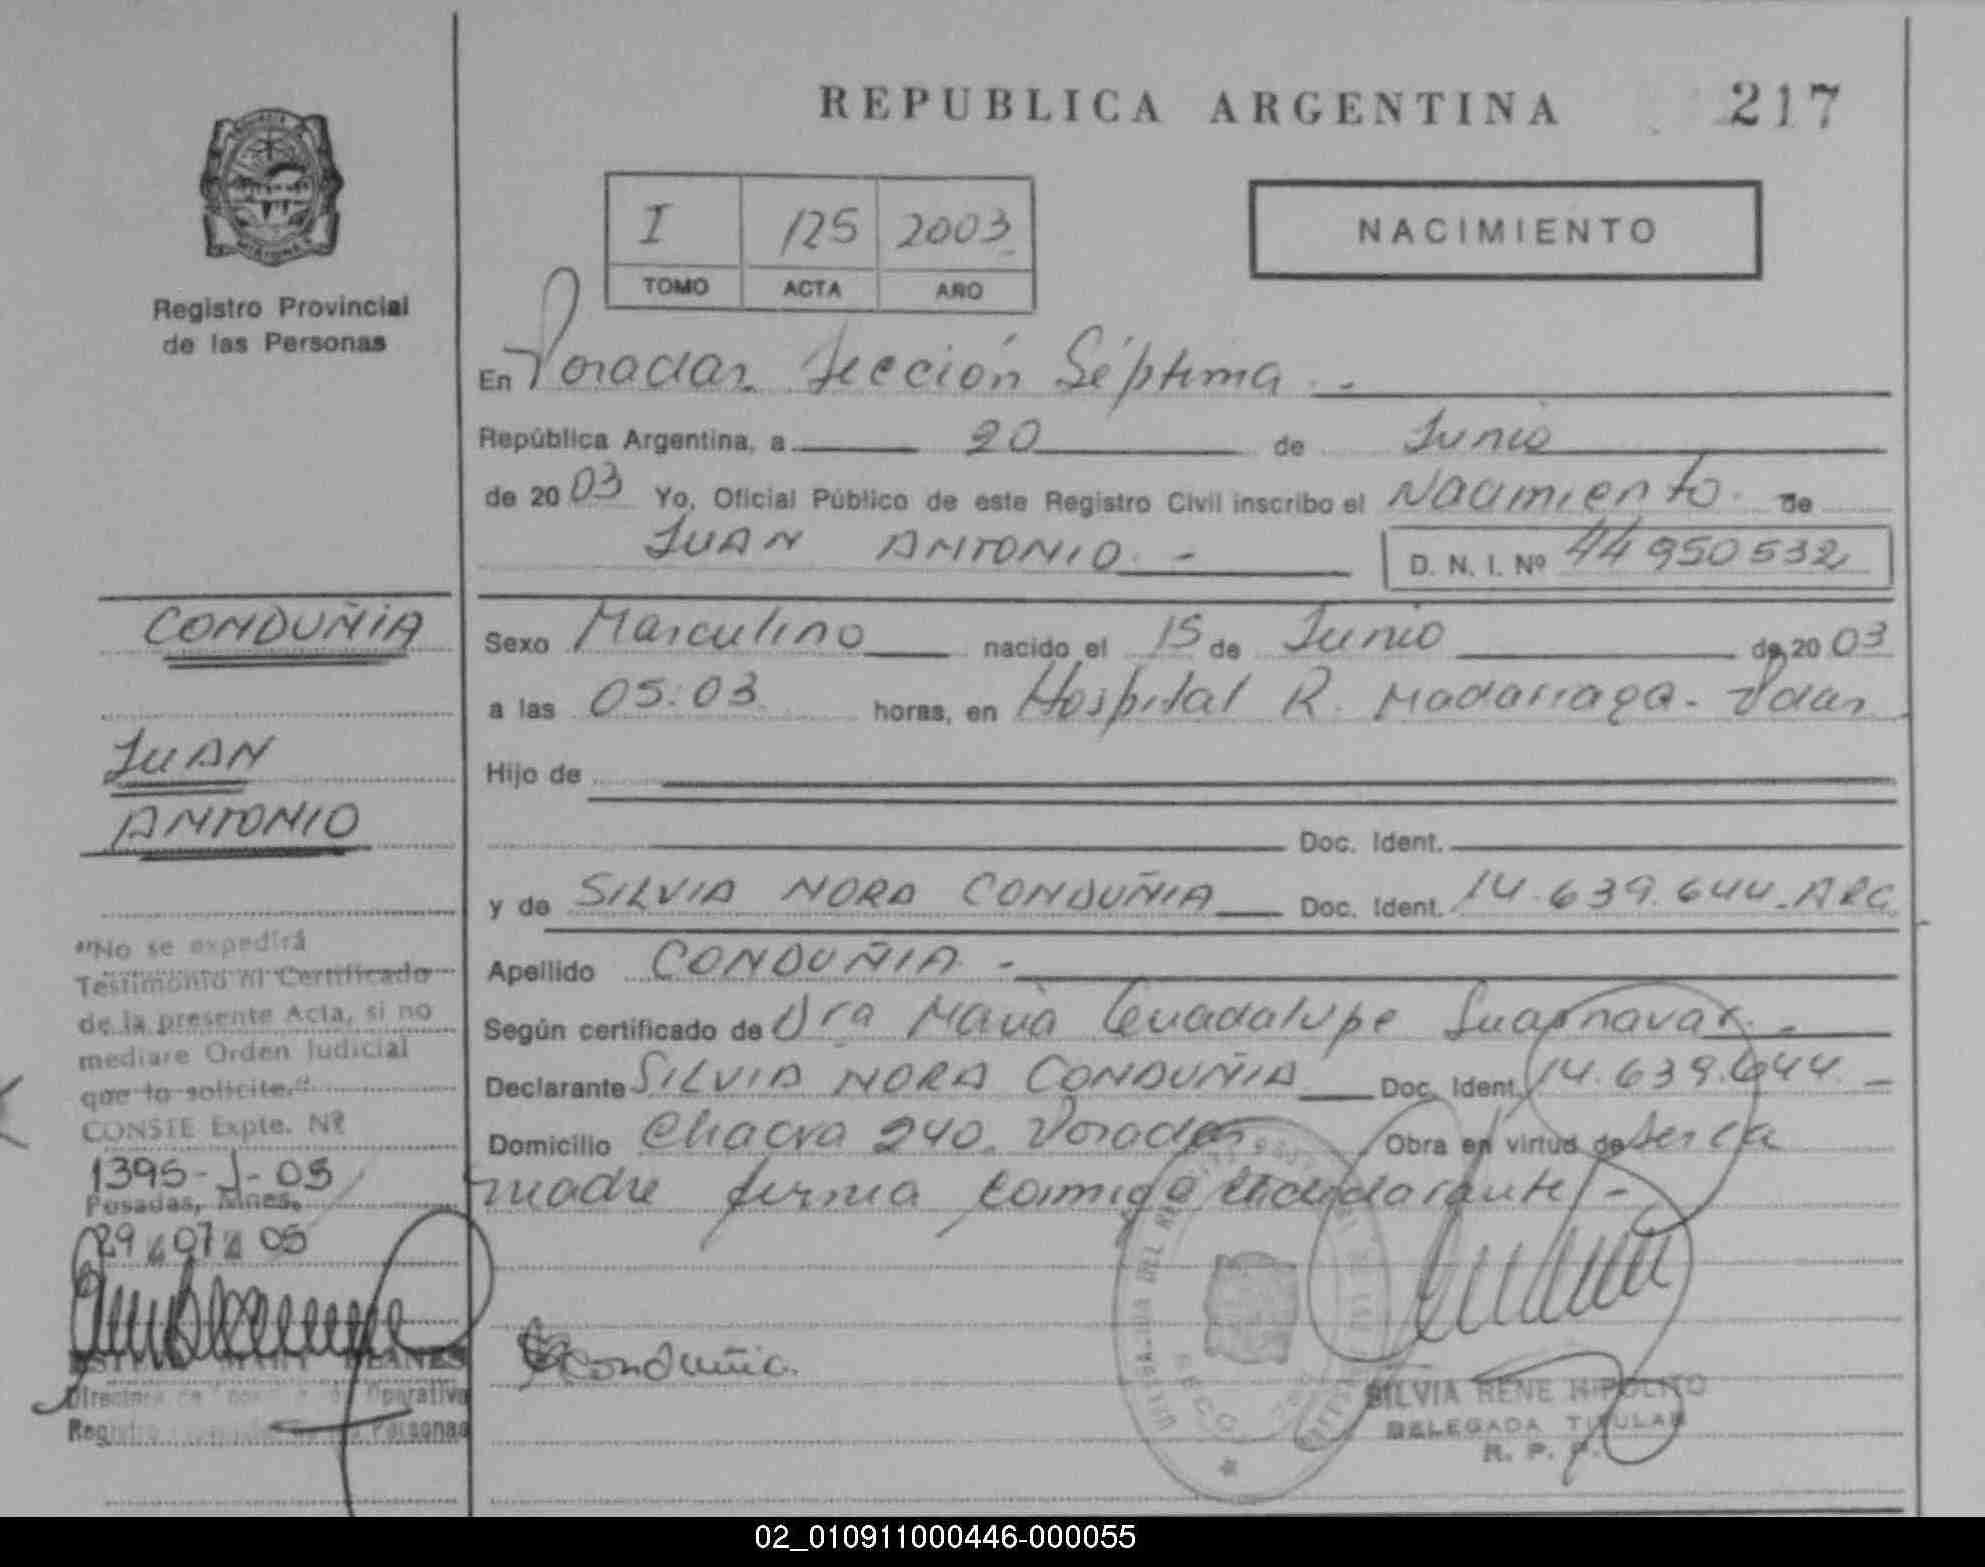 REPUBLICA ARGENTINA 217
Registro Provincial
de las Personas
I 125 2003
TOMO ACTA AÑO
NACIMIENTO
En Posadas Sección Séptima.-
República Argentina, a 20 de Junio
de 2003 Yo, Oficial Público de este Registro Civil inscribo el Nacimiento de
JUAN ANTONIO.- D. N. I. Nº 44950532
CONDUÑIA
JUAN
ANTONIO
Sexo Masculino nacido el 15 de Junio de 2003
a las 05:03 horas, en Hospital R. Madariaga - Pdas
Hijo de
Doc. Ident.
y de SILVIA NORA CONDUÑIA Doc. Ident. 14.639.644. ARG
Apellido CONDUÑIA -
Según certificado de Dra Maria Guadalupe
Declarante SILVIA NORA CONDUÑIA Doc. Ident. 14.639.644 -
Domicilio Chacra 240. Posadas Obra en virtud de ser la
madre firma conmigo la declarante -
"No se expedirá
Testimonio ni Certificado
de la presente Acta, si no
mediare Orden Judicial
que lo solicite."
CONSTE Expte. Nº
1395-J-05
Posadas, Mnes.
29 07 05
Registro de las Personas
Conduñia
SILVIA RENE HIPOLITO
DELEGADA TITULAR
R. P. P.
02_010911000446-000055